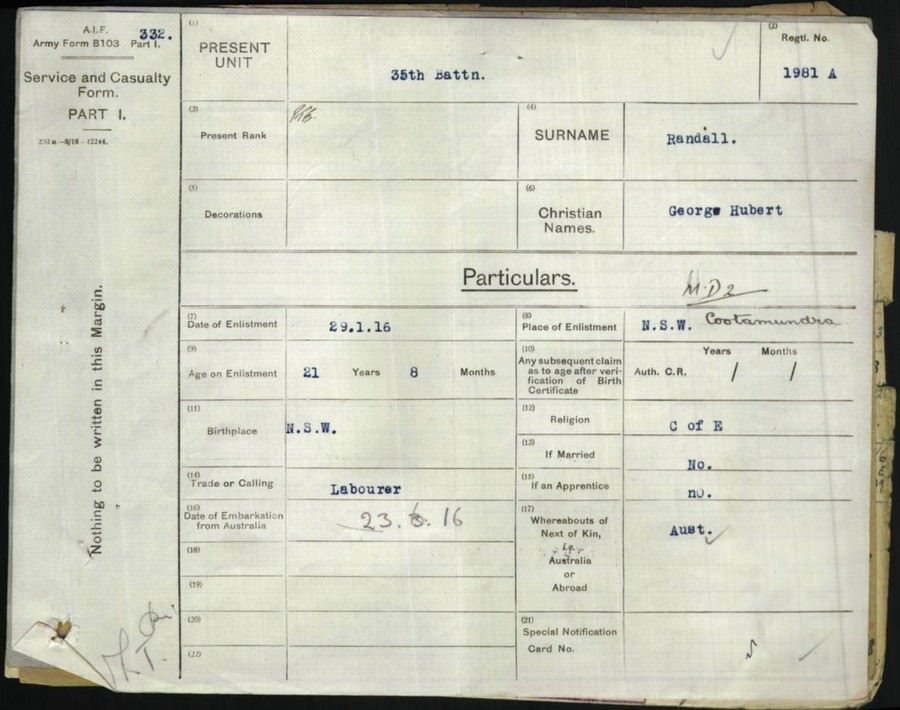 A.I.F. 332.
Army Form B103 Part I.
Service and Casualty
Form.
PART I.
Nothing to be written in this Margin.
(1)
PRESENT
UNIT
35th Battn.
(2)
Regtl. No.
1981 A
(3)
Present Rank
(4)
SURNAME
Randall.
(5)
Decorations
(6)
Christian
Names.
George Hubert
Particulars.
M.D 2
(7)
Date of Enlistment
29.1.16
(8)
Place of Enlistment
N.S.W. Cootamundra
(9)
Age on Enlistment
21 Years 8 Months
(10)
Any subsequent claim
as to age after veri-
fication of Birth
Certificate
Years Months
Auth. C.R. / /
(11)
Birthplace
N.S.W.
(12)
Religion
C of E
(13)
If Married
No.
(14)
Trade or Calling
Labourer
(15)
If an Apprentice
no.
(16)
Date of Embarkation
from Australia
23. 6. 16
(17)
Whereabouts of
Next of Kin,
i.e.
Australia
or
Abroad
Aust.
(18)
(19)
(20)
(21)
Special Notification
Card No.
(22)